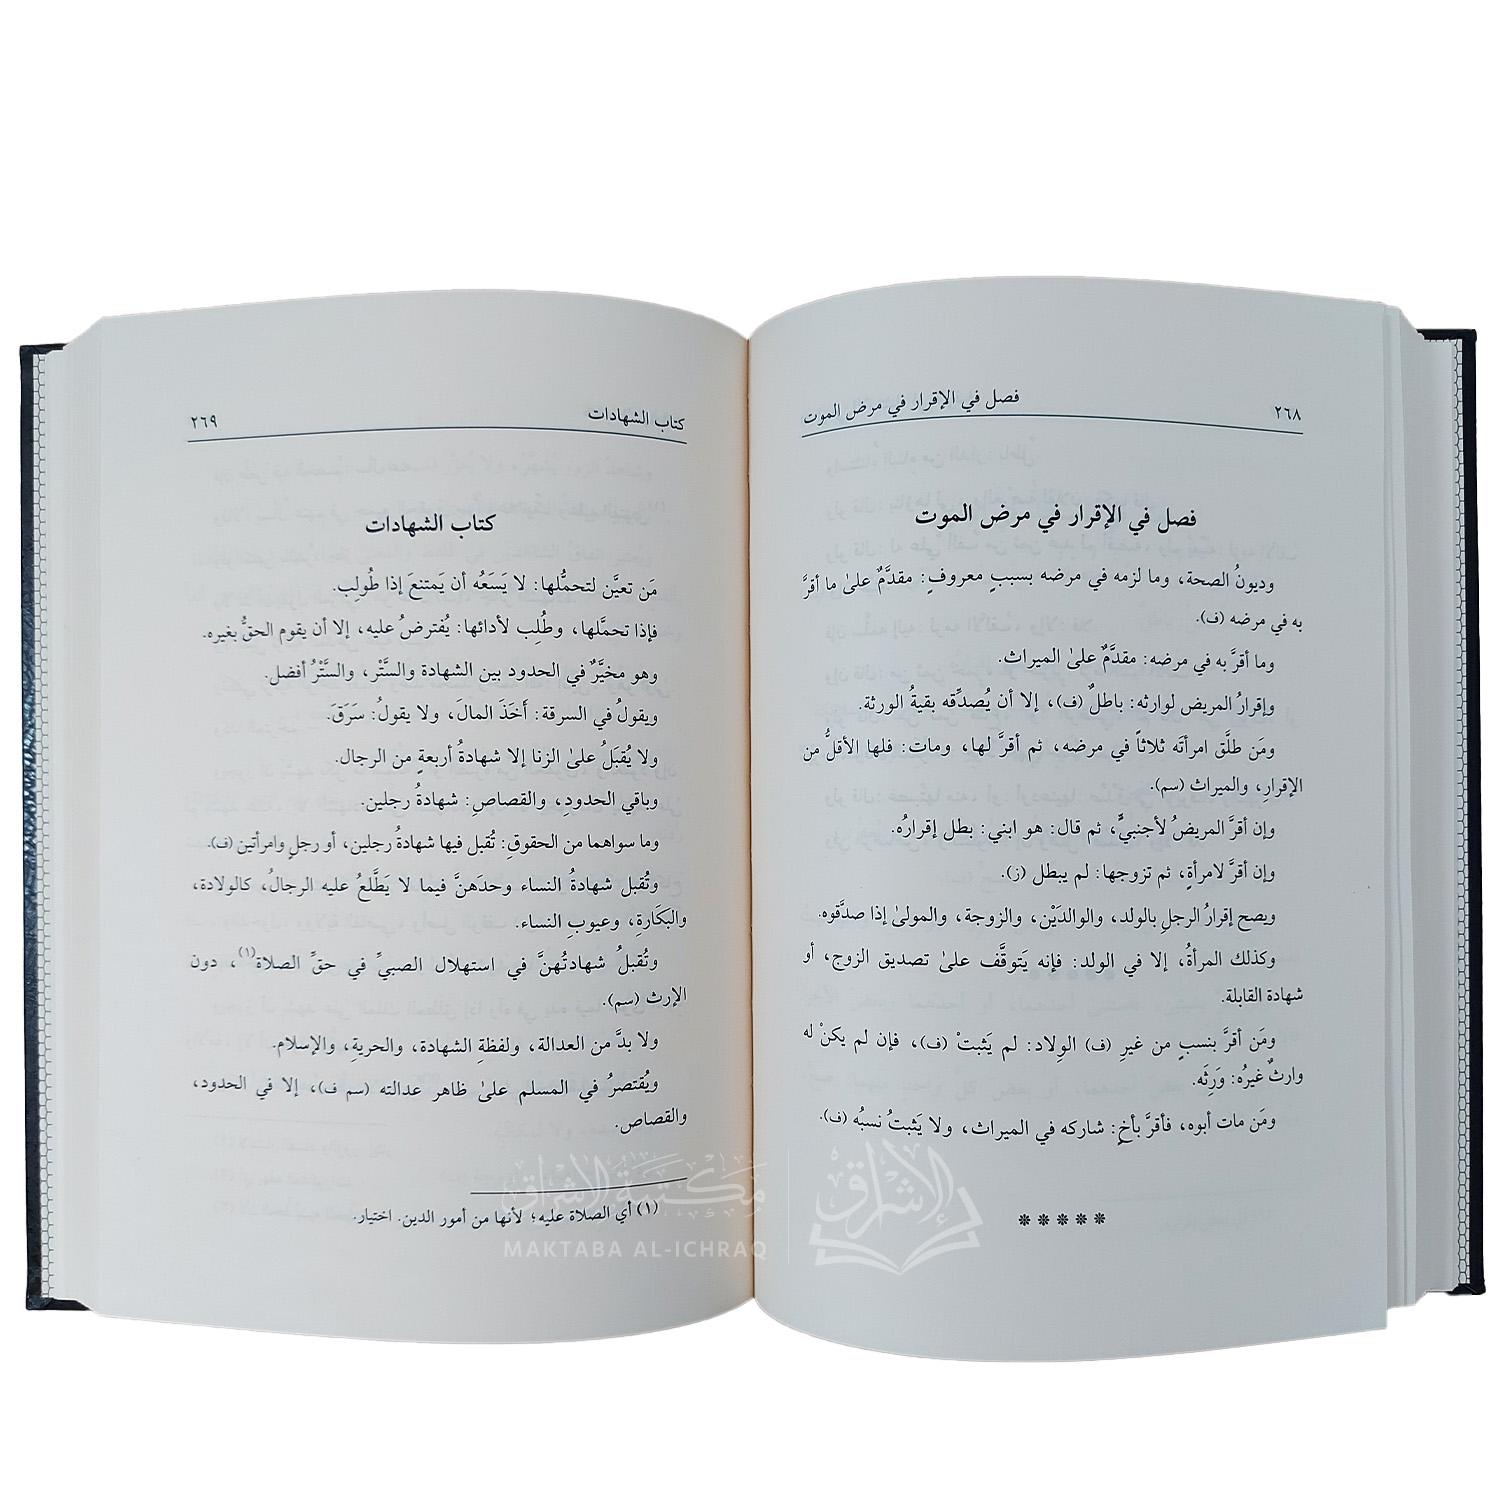 ٢٦٨ فصل في الإقرار في مرض الموت
فصل في الإقرار في مرض الموت
وديونُ الصحة، وما لزمه في مرضه بسببٍ معروفٍ: مقدَّمٌ علىٰ ما أقرَّ
به في مرضه (ف).
وما أقرَّ به في مرضه: مقدَّمٌ علىٰ الميراث.
وإقرارُ المريض لوارثه: باطلٌ (ف)، إلا أن يُصدِّقه بقيةُ الورثة.
ومَن طلَّق امرأتَه ثلاثاً في مرضه، ثم أقرَّ لها، ومات: فلها الأقلُّ من
الإقرارِ، والميراث (سم).
وإن أقرَّ المريضُ لأجنبيٍّ، ثم قال: هو ابني: بطل إقرارُه.
وإن أقرَّ لامرأةٍ، ثم تزوجها: لم يبطل (ز).
ويصح إقرارُ الرجلِ بالولد، والوالدَيْن، والزوجة، والمولىٰ إذا صدَّقوه.
وكذلك المرأةُ، إلا في الولد: فإنه يَتوقَّف علىٰ تصديق الزوج، أو
شهادة القابلة.
ومَن أقرَّ بنسبٍ من غيرِ (ف) الوِلاد: لم يَثبتْ (ف)، فإن لم يكنْ له
وارثٌ غيرُه: وَرِثَه.
ومَن مات أبوه، فأقرَّ بأخٍ: شاركه في الميراث، ولا يَثبتُ نسبُه (ف).
*****
كتاب الشهادات ٢٦٩
كتاب الشهادات
مَن تعيَّن لتحمُّلها: لا يَسَعُه أن يَمتنعَ إذا طُولِب.
فإذا تحمَّلها، وطُلِب لأدائها: يُفترضُ عليه، إلا أن يقوم الحقُّ بغيره.
وهو مخيَّرٌ في الحدود بين الشهادة والستْر، والسَّتْرُ أفضل.
ويقولُ في السرقة: أَخَذَ المالَ، ولا يقولُ: سَرَقَ.
ولا يُقبَلُ علىٰ الزنا إلا شهادةُ أربعةٍ من الرجال.
وباقي الحدودِ، والقصاصِ: شهادةُ رجلين.
وما سواهما من الحقوق: تُقبل فيها شهادةُ رجلين، أو رجلٍ وامرأتين (ف).
وتُقبل شهادةُ النساء وحدَهنَّ فيما لا يَطَّلعُ عليه الرجالُ، كالولادة،
والبَكَارةِ، وعيوبِ النساء.
وتُقبلُ شهادتُهنَّ في استهلال الصبيِّ في حقِّ الصلاة(١)، دون
الإرث (سم).
ولا بدَّ من العدالة، ولفظةِ الشهادة، والحريةِ، والإسلام.
ويُقتصرُ في المسلم علىٰ ظاهر عدالته (سم ف)، إلا في الحدود،
والقصاص.
(١) أي الصلاة عليه؛ لأنها من أمور الدين. اختيار.
مكتبة الإشراق
MAKTABA AL-ICHRAQ
الإشراق